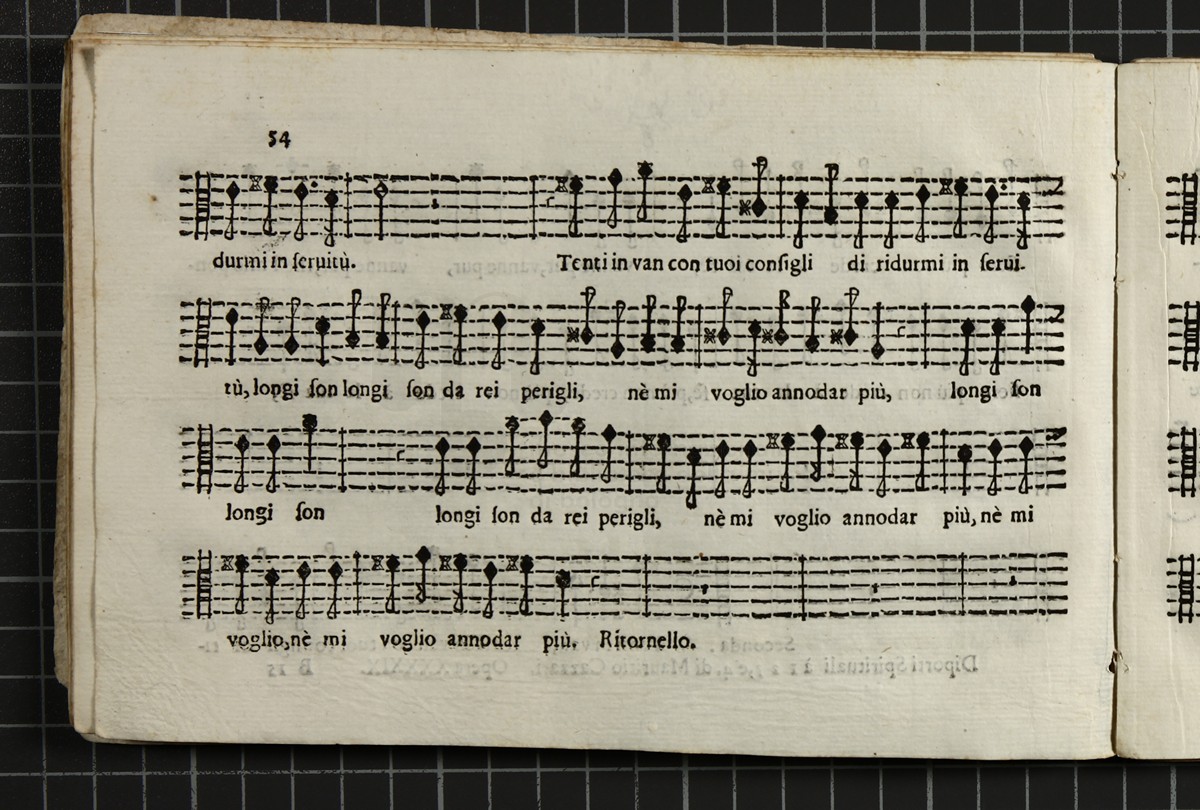 54
durmi in ſeruitù. Tenti in van con tuoi conſigli di ridurmi in ſerui-
tù, longi ſon longi ſon da rei perigli, nè mi voglio annodar più, longi ſon
longi ſon longi ſon da rei perigli, nè mi voglio annodar più, nè mi
voglio, nè mi voglio annodar più. Ritornello.